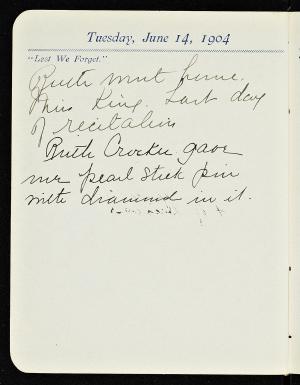 Tuesday, June 14, 1904
"Lest We Forget."
Ruth went home.
Miss King. Last day
of recitations
Ruth Crocker gave
me pearl stick pin
with diamond in it.